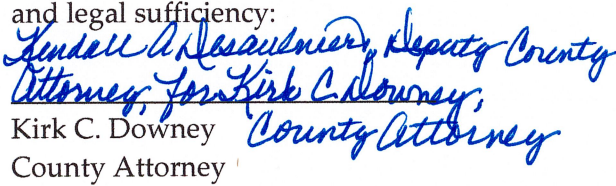 and legal sufficiency:
Kendall A Desaulniers, Deputy County
Attorney, for Kirk C. Downey,
County Attorney
Kirk C. Downey
County Attorney